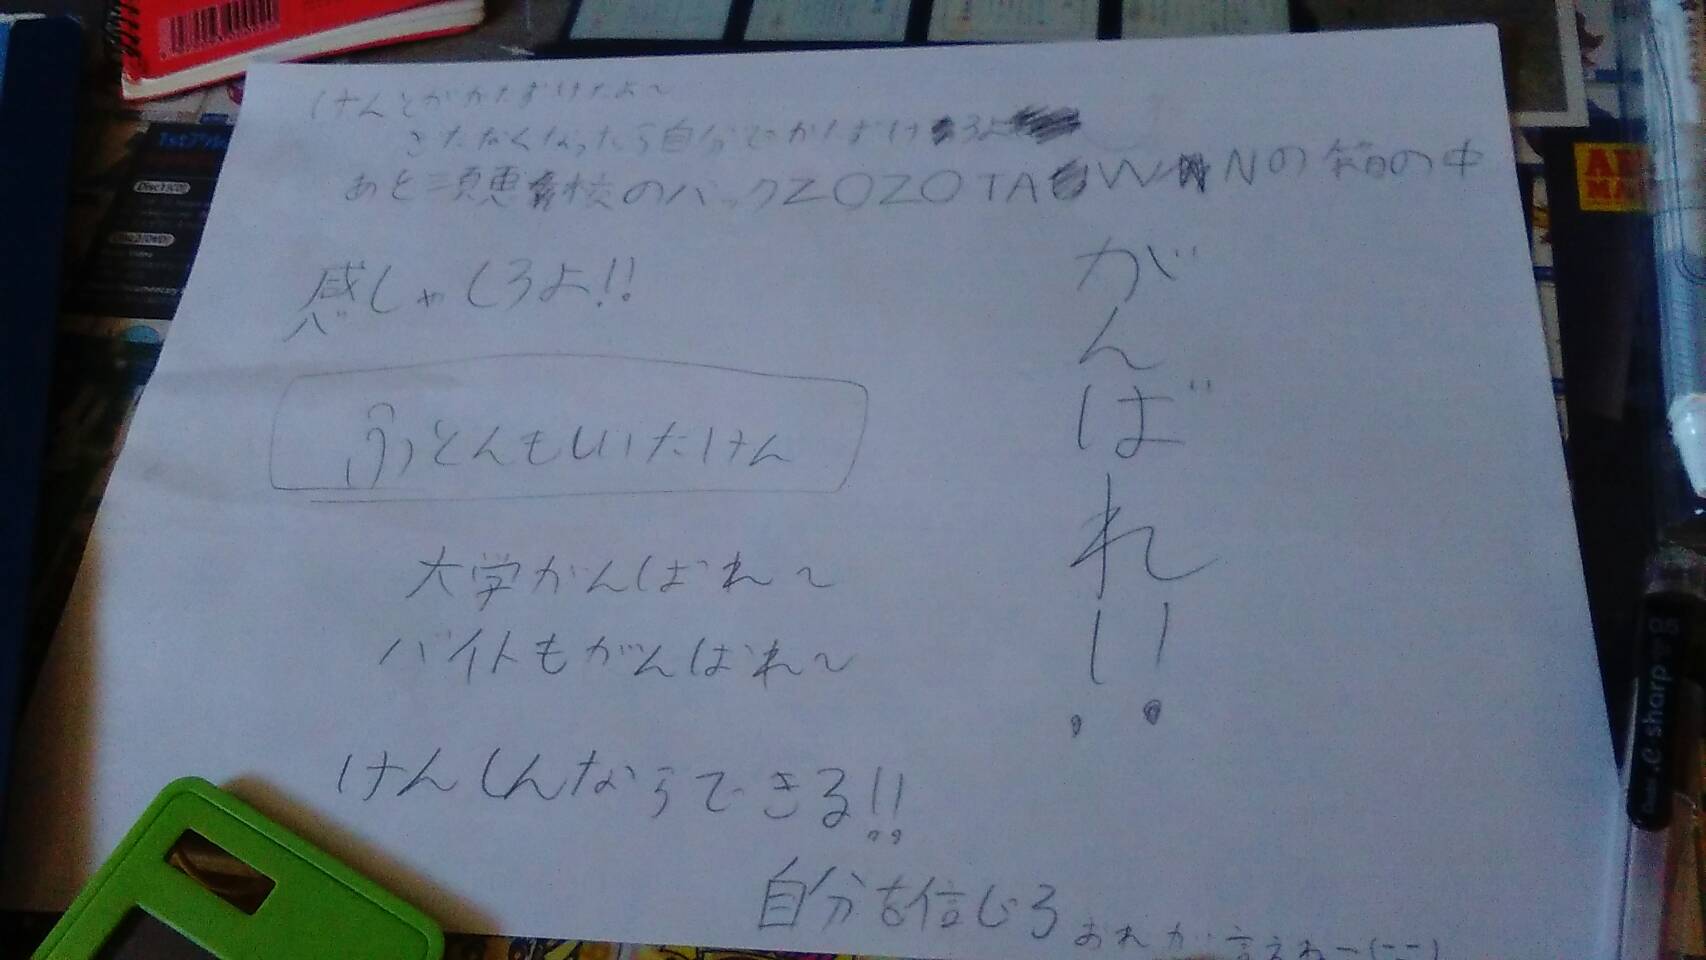 けんとがかたずけたよ〜
きたなくなったら自分でかたずけろよ
あと須恵高校のバックZOZOTAWNの箱の中
感しゃしろよ!!
ふとんもしいたけん
大学がんばれ〜
バイトもがんばれ〜
けんしんならできる!!
自分を信じろ
おれが言えねー(--)
がんばれい!!
c sharp